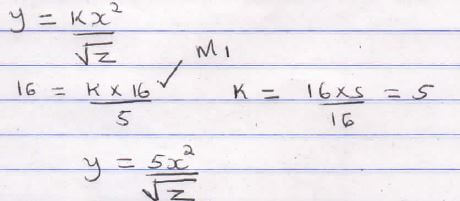 y = Kx²/√z
M1
16 = K × 16/5 ✓ K = 16×5/16 = 5
y = 5x²/√z